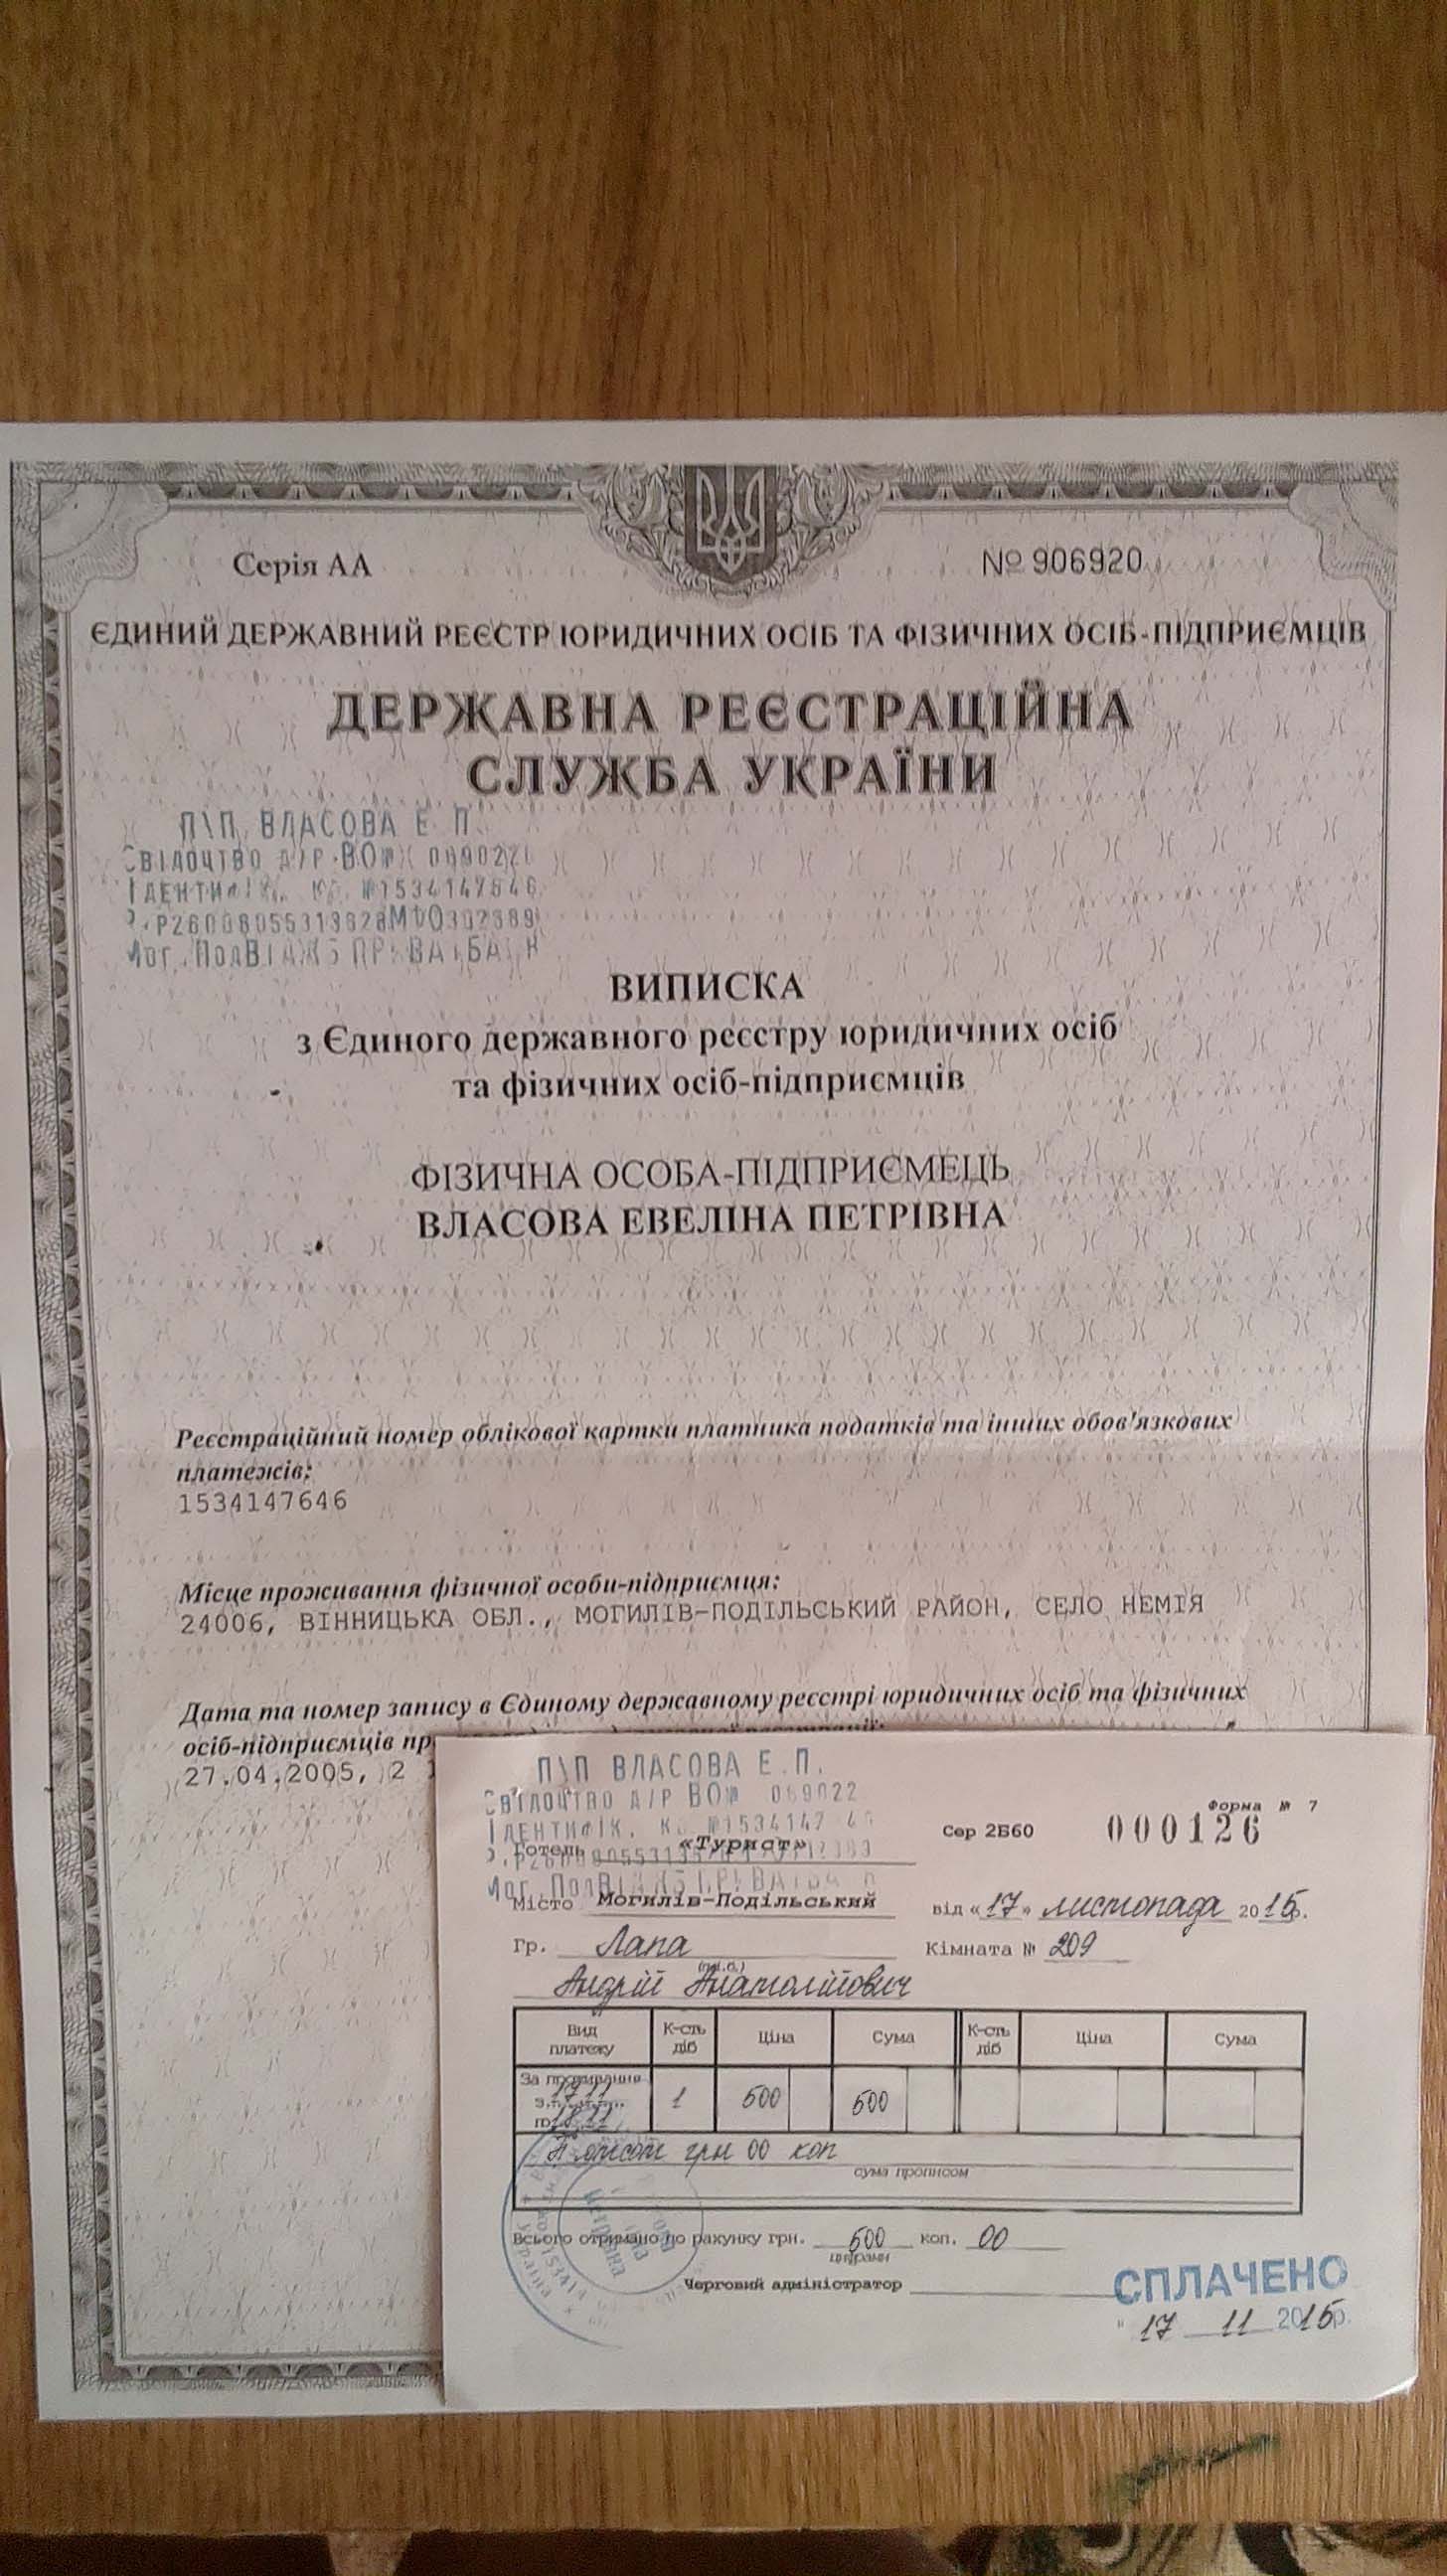 Серія АА
№ 906920
ЄДИНИЙ ДЕРЖАВНИЙ РЕЄСТР ЮРИДИЧНИХ ОСІБ ТА ФІЗИЧНИХ ОСІБ-ПІДПРИЄМЦІВ
ДЕРЖАВНА РЕЄСТРАЦІЙНА
СЛУЖБА УКРАЇНИ
П\П ВЛАСОВА Е П.
ВИПИСКА
з Єдиного державного реєстру юридичних осіб
та фізичних осіб-підприємців
ФІЗИЧНА ОСОБА-ПІДПРИЄМЕЦЬ
ВЛАСОВА ЕВЕЛІНА ПЕТРІВНА
Реєстраційний номер облікової картки платника податків та інших обов'язкових
платежів:
1534147646
Місце проживання фізичної особи-підприємця:
24006, ВІННИЦЬКА ОБЛ., МОГИЛІВ-ПОДІЛЬСЬКИЙ РАЙОН, СЕЛО НЕМІЯ
Дата та номер запису в Єдиному державному реєстрі юридичних осіб та фізичних
осіб-підприємців
27.04.2005, 2
П\П ВЛАСОВА Е.П.
Форма № 7
Сер 2Б60 000126
Готель «Турист»
Місто Могилів-Подільський від «17» листопада 2015р.
Гр. Лапа Кімната № 209
(п.і.б.)
Андрій Анатолійович
Вид платежу К-сть діб Ціна Сума К-сть діб Ціна Сума
За проживання
17.11 1 600 600
18.11
грн 00 коп
сума прописом
Всього отримано по рахунку грн. 600 коп. 00
цифрами
Черговий адміністратор
СПЛАЧЕНО
" 17 11 2015р.